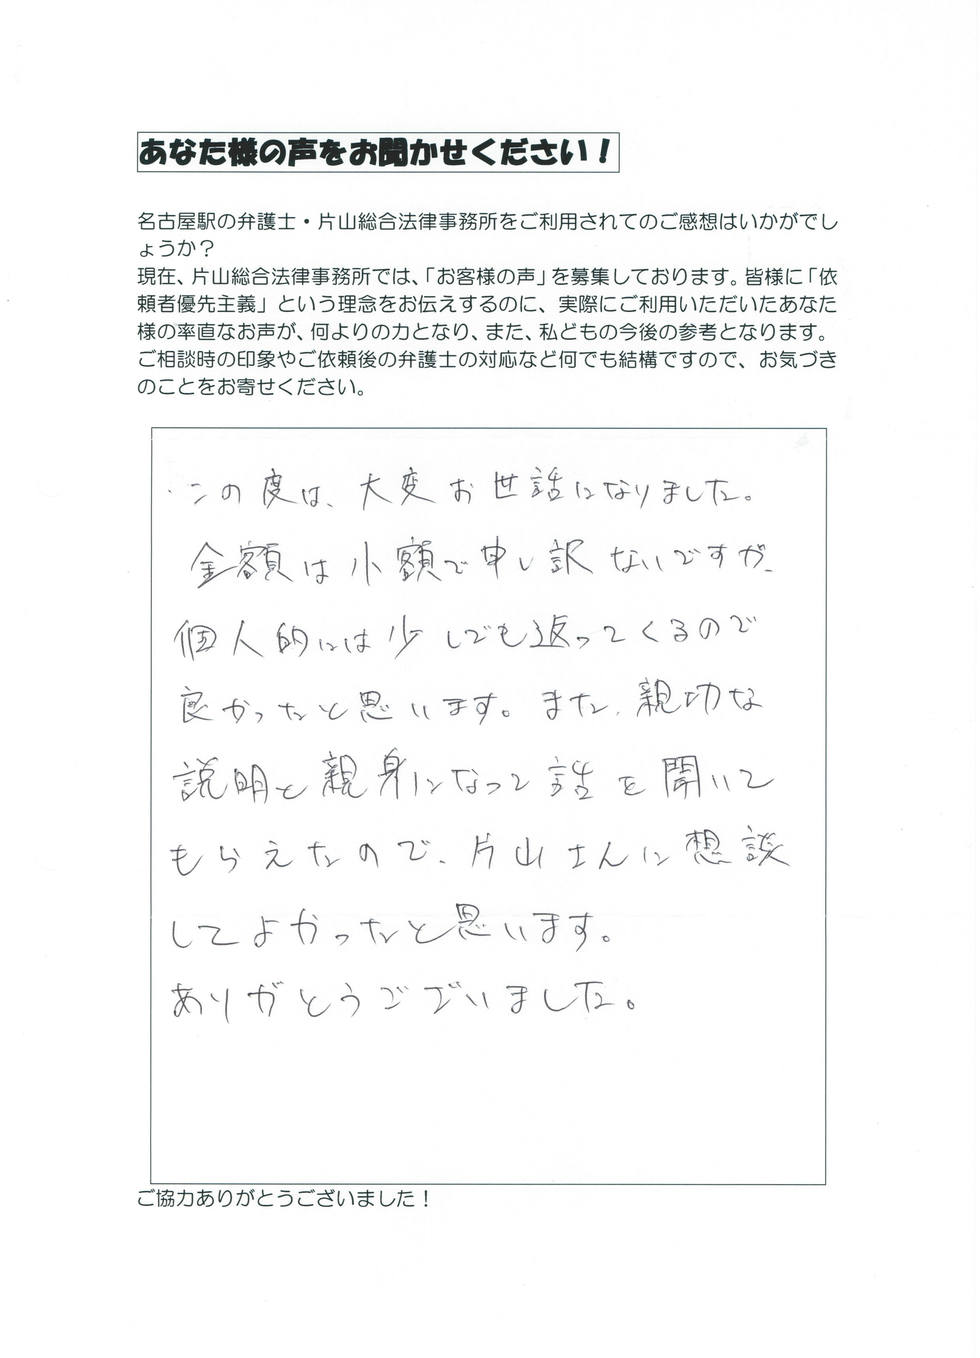 あなた様の声をお聞かせください！
名古屋駅の弁護士・片山総合法律事務所をご利用されてのご感想はいかがでし
ょうか？
現在、片山総合法律事務所では、「お客様の声」を募集しております。皆様に「依
頼者優先主義」という理念をお伝えするのに、実際にご利用いただいたあなた
様の率直なお声が、何よりの力となり、また、私どもの今後の参考となります。
ご相談時の印象やご依頼後の弁護士の対応など何でも結構ですので、お気づき
のことをお寄せください。
この度は、大変お世話になりました。
金額は小額で申し訳ないですが、
個人的には少しでも返ってくるので
良かったと思います。また、親切な
説明と親身になって話を聞いて
もらえたので、片山さんに想談
してよかったと思います。
ありがとうございました。
ご協力ありがとうございました！